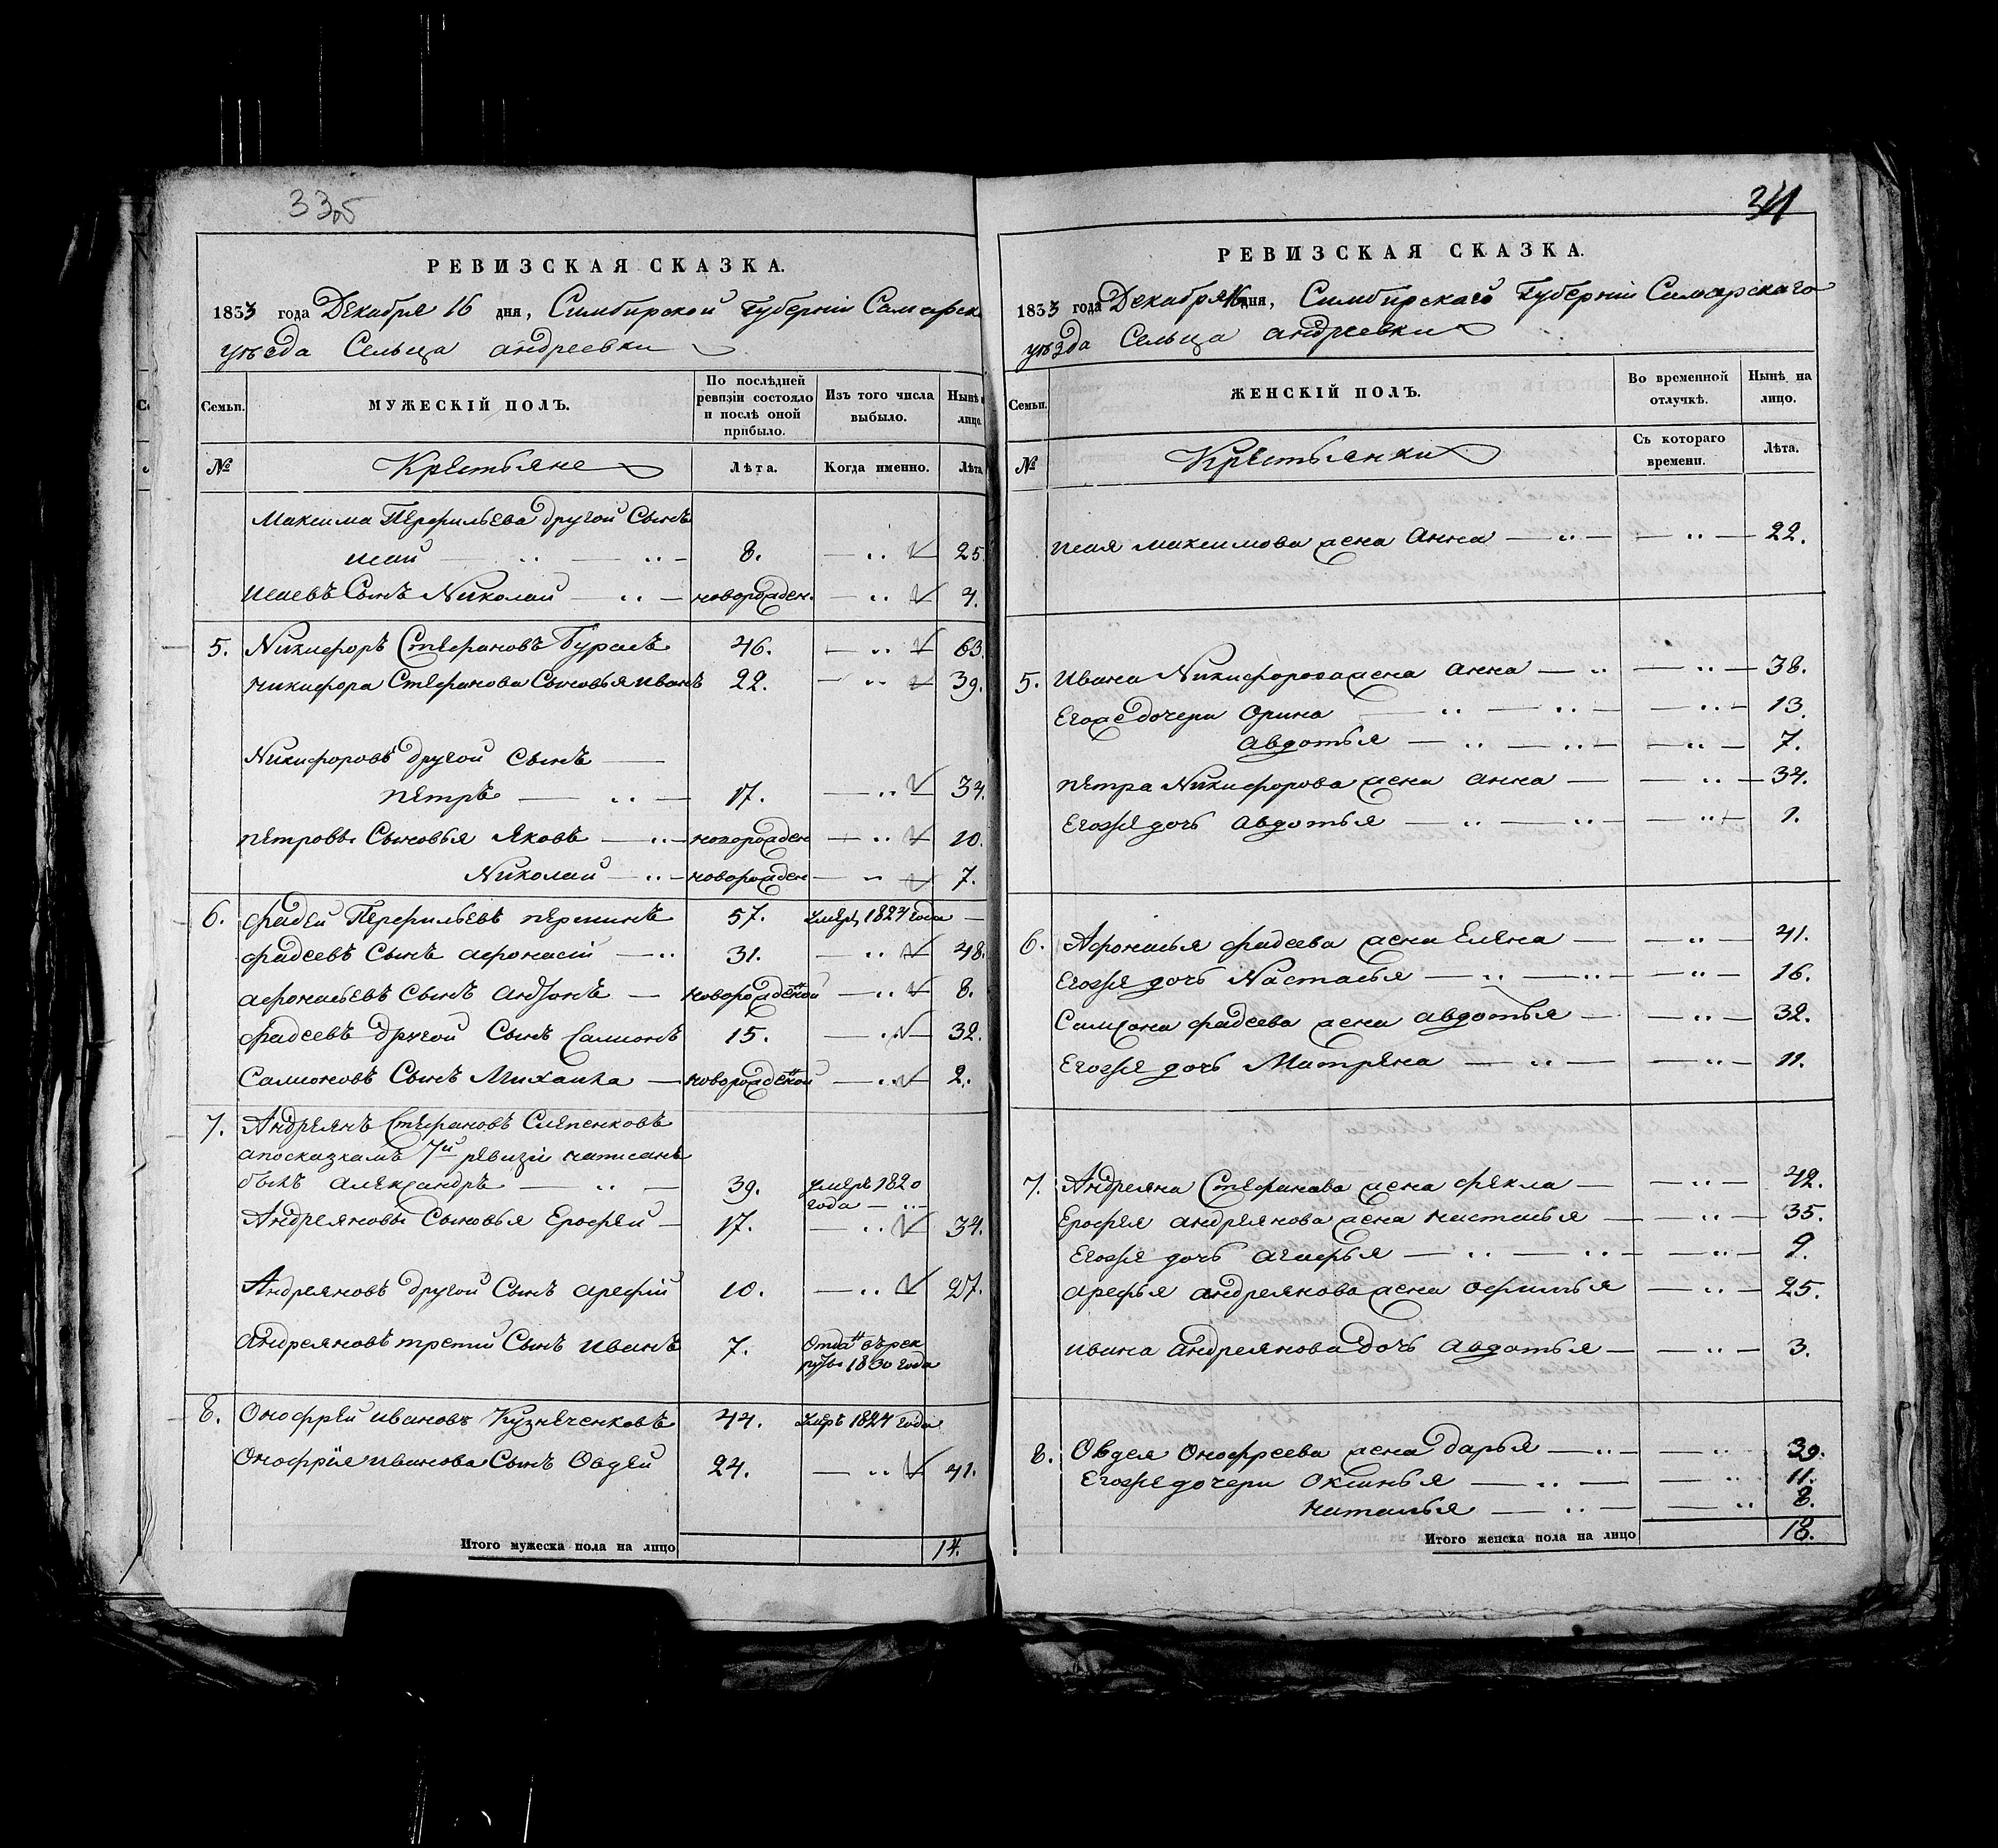 335
РЕВИЗСКАЯ СКАЗКА.
1833 года Декабря 16 дня, Симбирской Губерніи Самарск
уѣзда Сельца андреевки
Семьи.
МУЖЕСКІЙ ПОЛЪ.
По послѣдней ревизіи состояло и послѣ оной прибыло.
Изъ того числа выбыло.
Нынѣ лицо.
№ Крестьяне Лѣта. Когда именно. Лѣта
Максима Перфильева другой Сынъ
исай 8. 25.
исаевъ Сынъ Николай новорожден. 4.
5. Никифоръ Стефановъ Бураеъ 46. 63.
никифора Стефанова Сыновья иванъ 22. 39.
Никифоровъ другой Сынъ
петръ 17. 34.
петровы Сыновья Яковъ новорожден 10.
Николай новорожден 7.
6. фадей Перфильевъ 57. умеръ 1824 года
фадеевъ Сынъ афонасій 31. 48.
афонасьевъ Сынъ андронъ новорожденной 8.
фадеевъ другой Сынъ Самсонъ 15. 32.
Самсоновъ Сынъ Михайла новорожденной 2.
7. Андреянъ Стефановъ Слепенковъ
апосказкамъ 7й ревизіи написанъ
былъ александръ 39. умеръ 1820
года
Андреяновы Сыновья Ерофей 17. 34.
Андреяновъ другой Сынъ арефій 10. 27.
андреяновъ третій Сынъ иванъ 7. Отданъ въ рек
руты 1830 года
8. Онофрей ивановъ Кузнеченковъ 44. умеръ 1824 года
Онофрія иванова Сынъ Овдей 24. 41.
Итого мужеска пола на лицо 14.
34
РЕВИЗСКАЯ СКАЗКА.
1833 года Декабря 16 дня, Симбирскаго Губерніи Самарскаго
уѣзда Сельца андреевки
Семьи.
ЖЕНСКІЙ ПОЛЪ.
Во временной отлучкѣ.
Нынѣ на лицо.
№ Крестьянки Съ котораго времени. Лѣта.
исая максимова жена Анна 22.
5. Ивана Никифорова жена анна 38.
Егоже дочери Орина 13.
авдотья 7.
петра Никифорова жена анна 34.
Егоже дочь авдотья 1.
6. Афонасья фадеева жена Елена 41.
Егоже дочь Настасья 16.
Самсона фадеева жена авдотья 32.
Егоже дочь Матрена 11.
7. Андреяна Стефанова жена фекла 42.
Ерофея андреянова жена настасья 35.
Егоже дочь агафья 9.
арефья андреянова жена офимья 25.
ивана андреянова дочь авдотья 3.
8. Овдея Онофреева жена дарья 39.
Егоже дочери Оксинья 11.
наталья 8.
Итого женска пола на лицо 18.